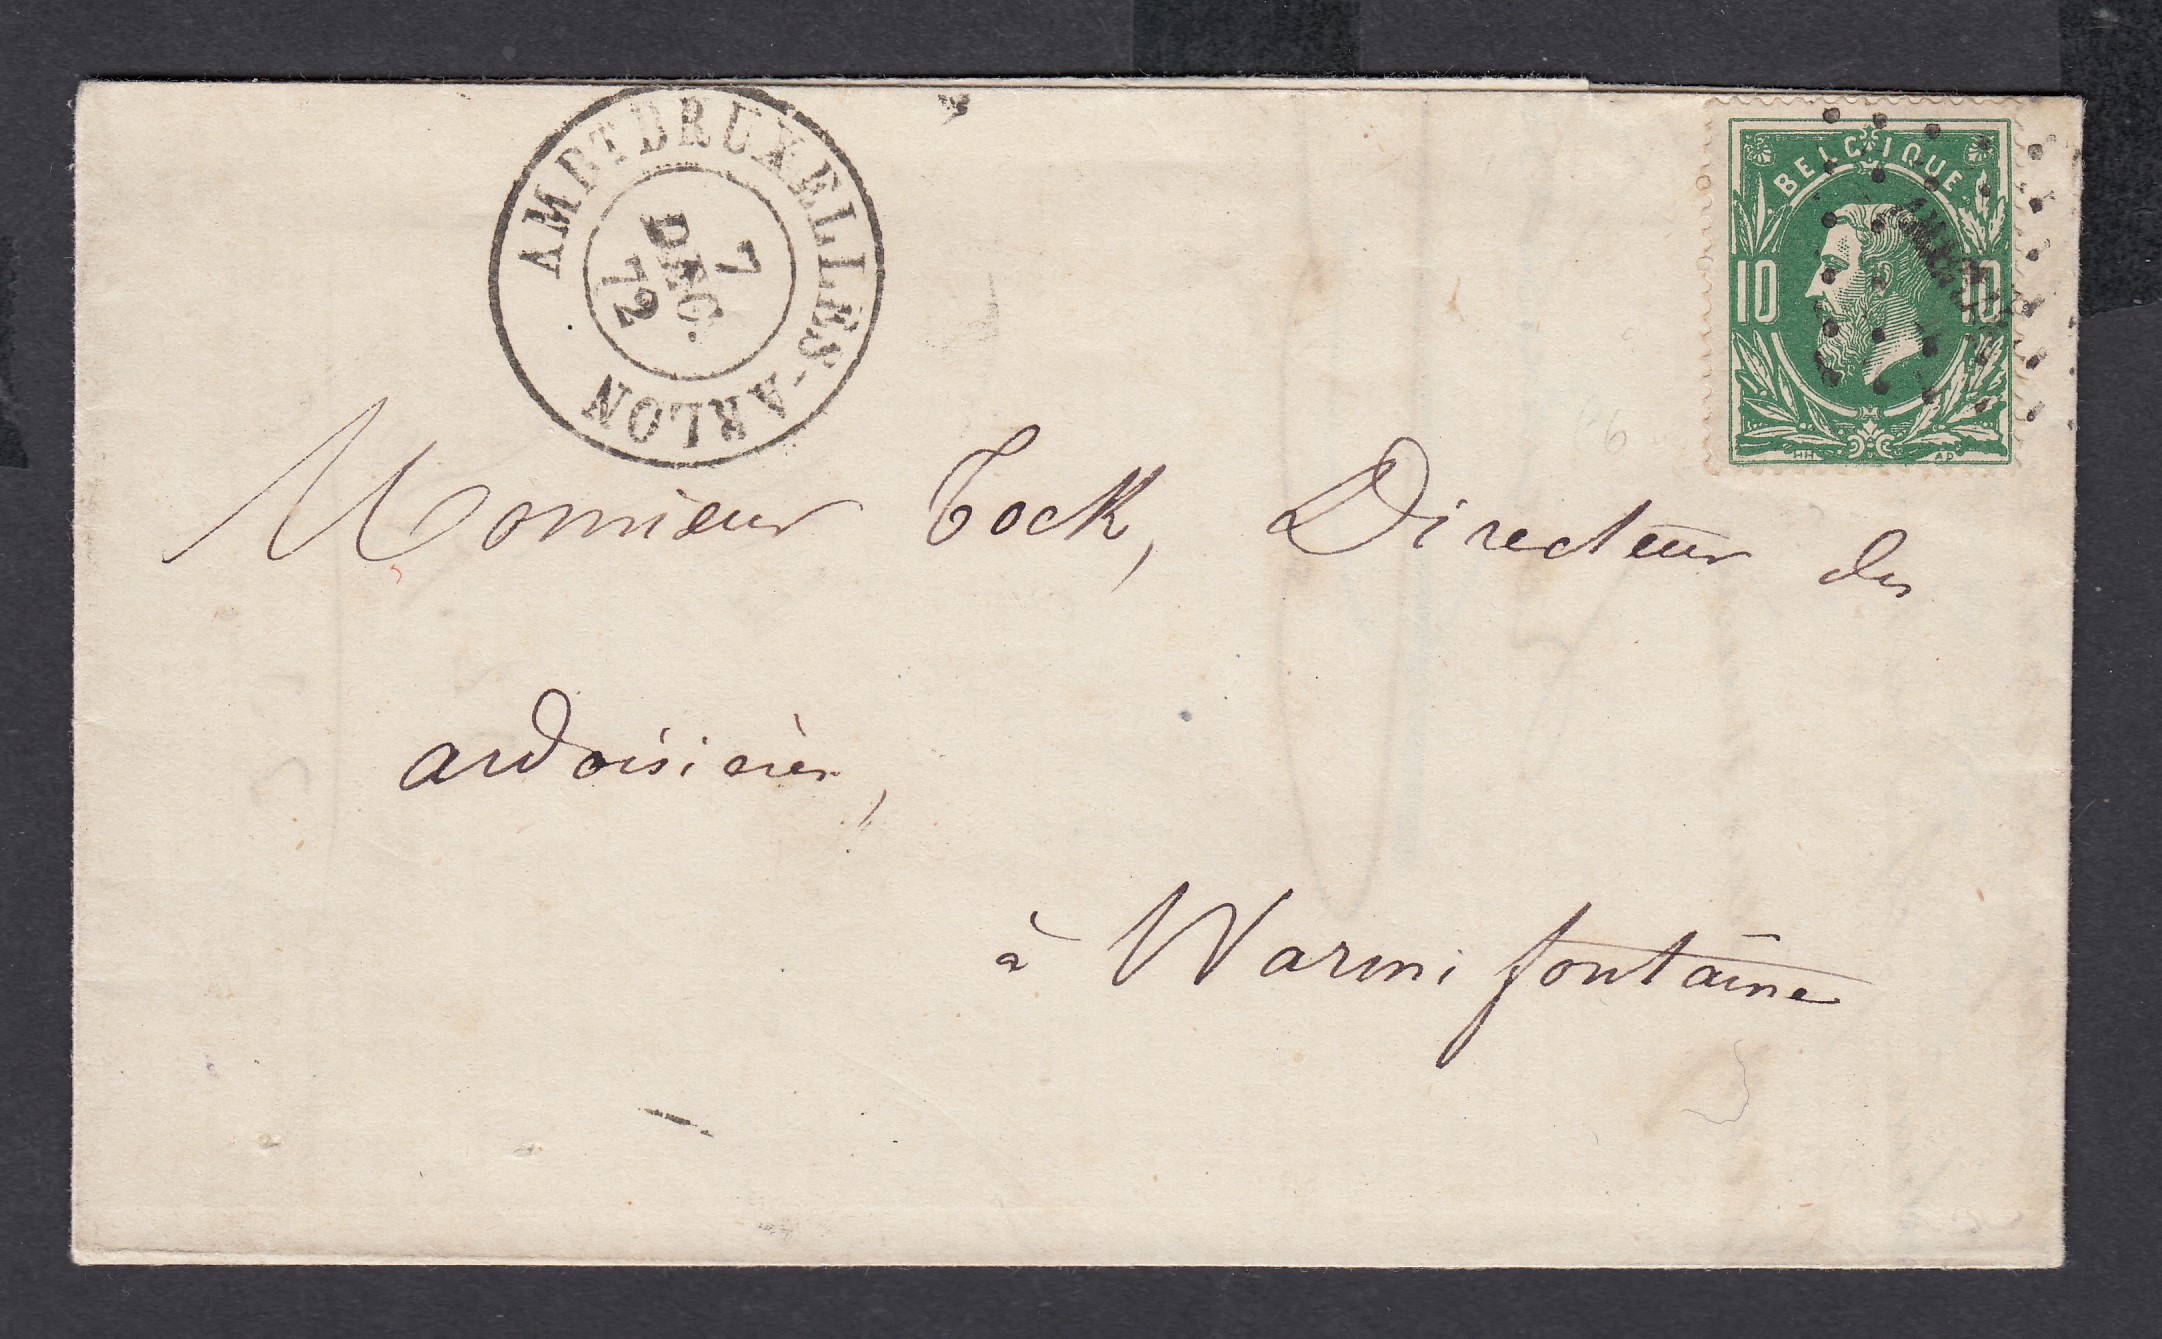 AMBT BRUXELLES-ARLON
7
DÉC.
72
BELGIQUE
10 10
HH AD
Monsieur Tock, Directeur des
ardoisières,
à Warmifontaine